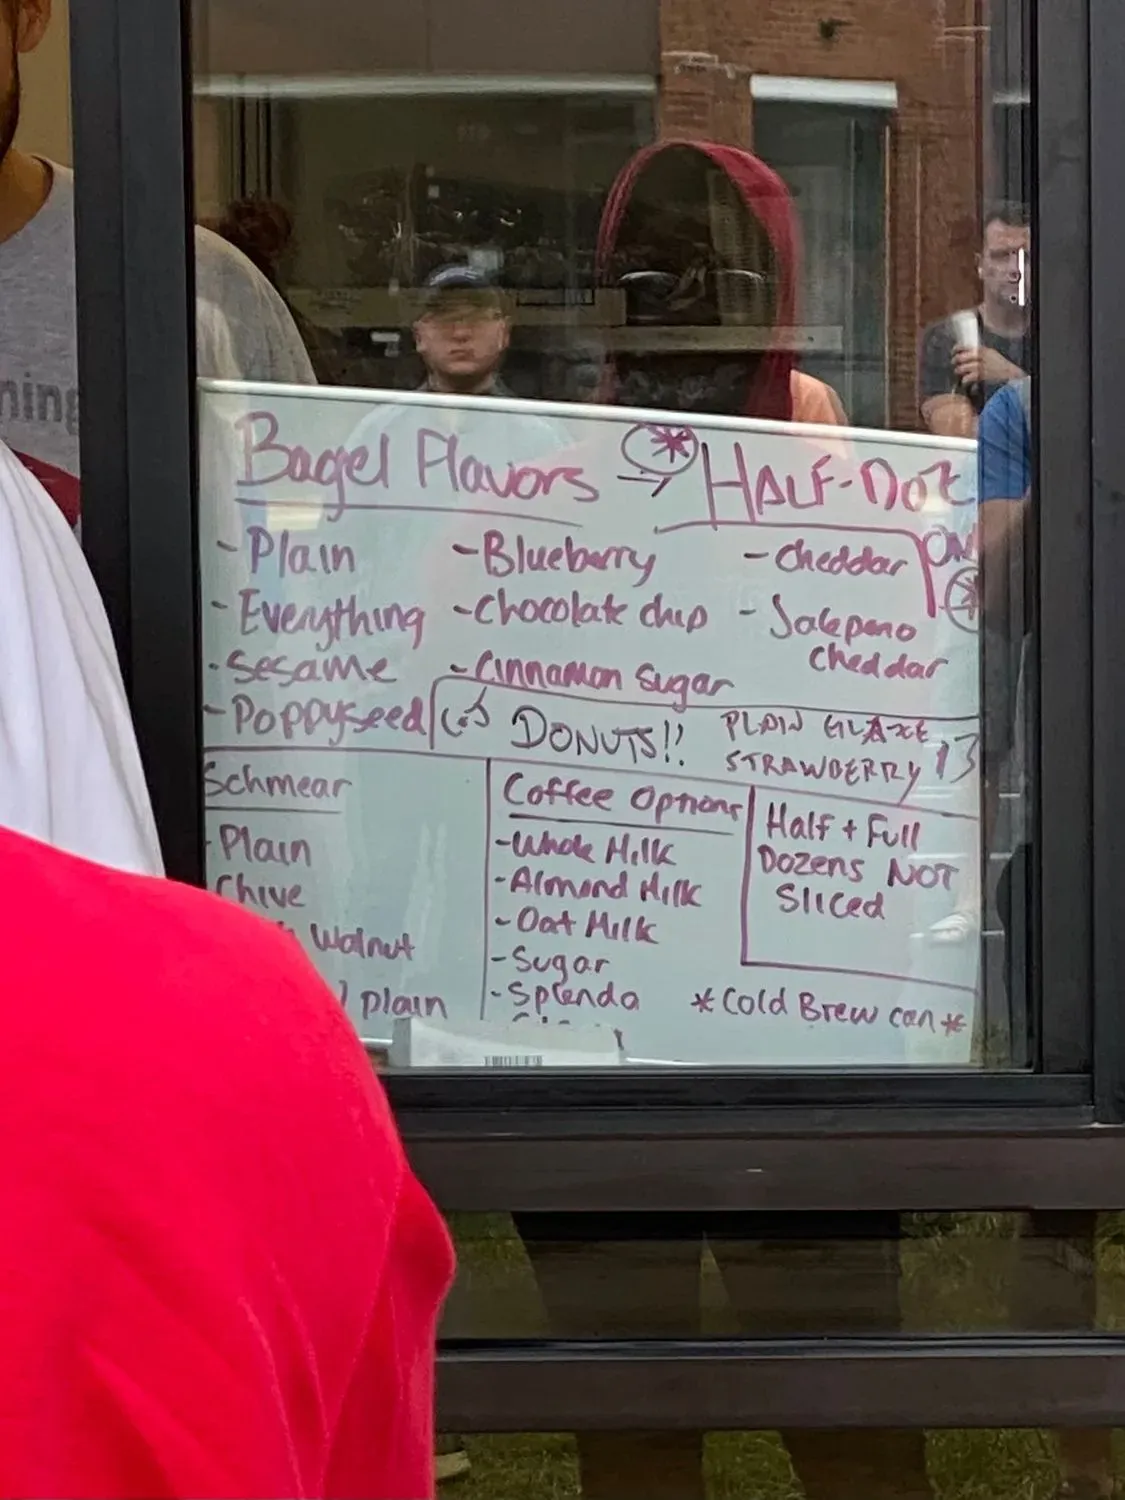 Bagel Flavors → * HALF-DOZ
ONLY
- Plain
- Everything
- Sesame
- Poppyseed
- Blueberry
- Chocolate chip
- Cinnamon Sugar
- Cheddar
- Jalepeno
Cheddar
DONUTS!! PLAIN GLAZE
STRAWBERRY
Schmear
- Plain
Chive
Walnut
plain
Coffee Options
- Whole Milk
- Almond Milk
- Oat Milk
- Sugar
- Splenda
Half + Full
Dozens NOT
Sliced
*Cold Brew can*
ning